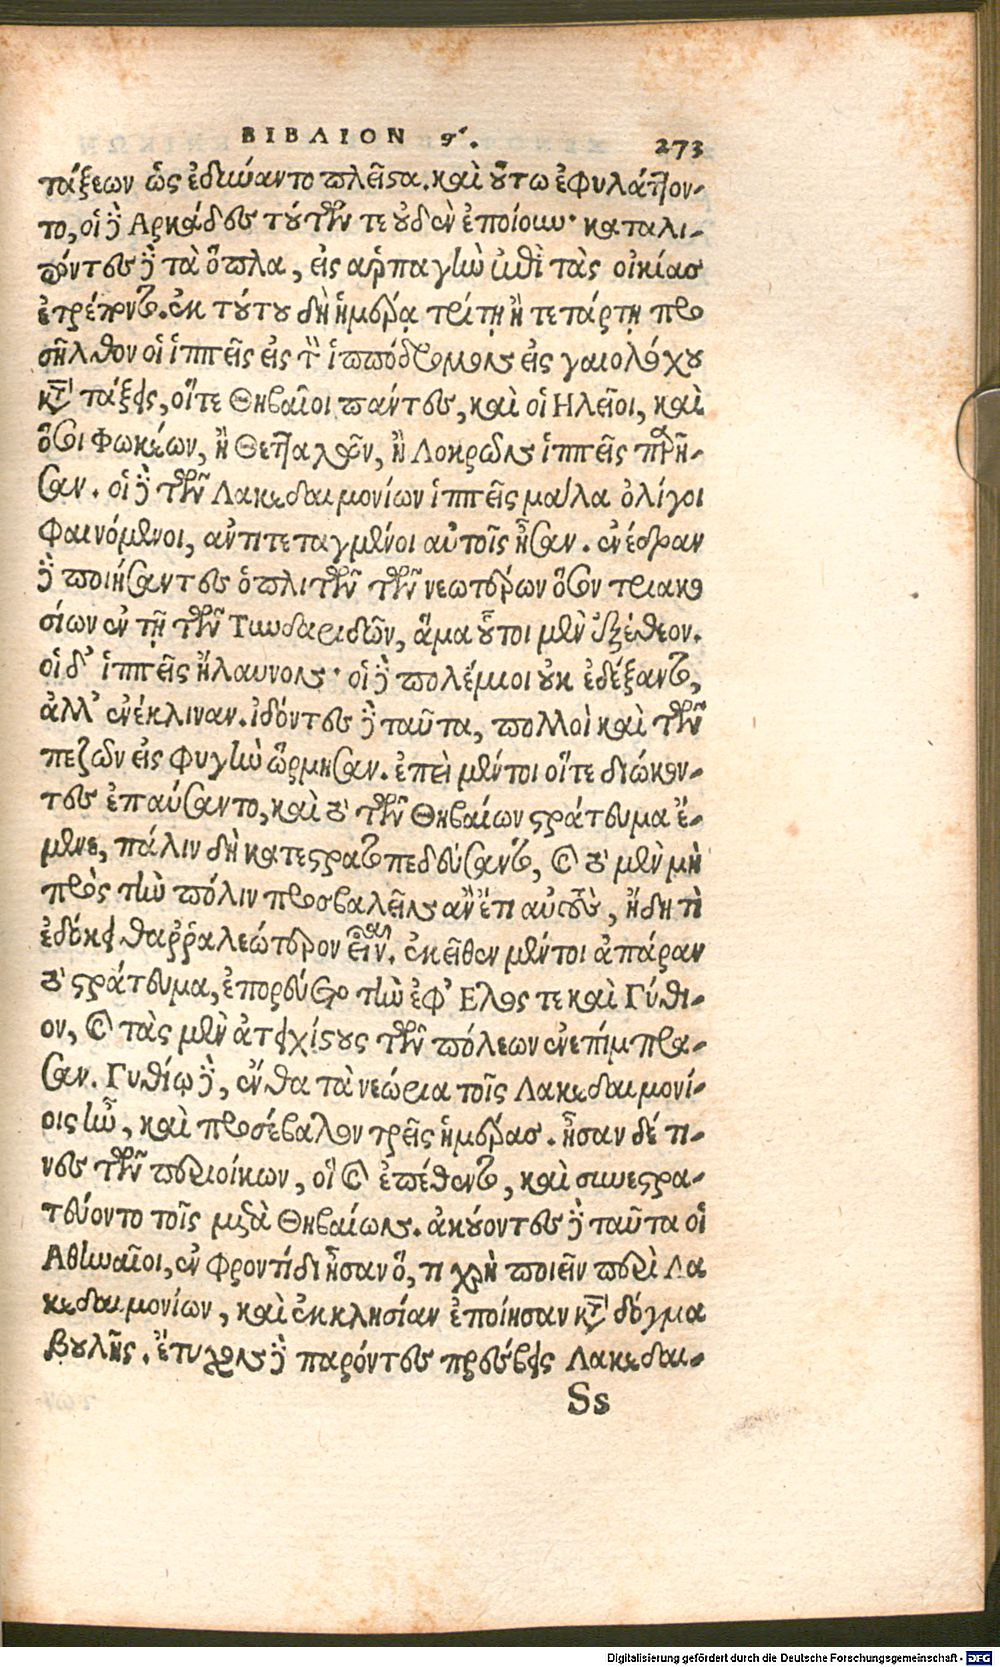 ΒΙΒΛΙΟΝ ϛ΄. 273
τάξεων ὡς ἐδύναντο πλεῖστα. καὶ οὕτω ἐφυλάττον-
το, οἱ δὲ Ἀρκάδες τούτων τε οὐδὲν ἐποίουν· καταλι-
πόντες δὲ τὰ ὅπλα, εἰς ἁρπαγὴν ἐπὶ τὰς οἰκίας
ἐτρέποντο. ἐκ τούτου δὴ ἡμέρᾳ τρίτῃ ἢ τετάρτῃ προ
σῆλθον οἱ ἱππεῖς εἰς τὸν ἱππόδρομον εἰς γαιολόχου
κατὰ τάξεις, οἵτε Θηβαῖοι πάντες, καὶ οἱ Ηλεῖοι, καὶ
ὅσοι Φωκέων, ἢ Θετταλῶν, ἢ Λοκρῶν ἱππεῖς παρῆ-
σαν. οἱ δὲ τῶν Λακεδαιμονίων ἱππεῖς μάλα ὀλίγοι
φαινόμενοι, ἀντιτεταγμένοι αὐτοῖς ἦσαν. ἐνέδραν
δὲ ποιήσαντες ὁπλιτῶν τῶν νεωτέρων ὅσον τριακο
σίων ἐν τῇ τῶν Τυνδαριδῶν, ἅμα οὗτοι μὲν ἐξέθεον.
οἱ δ' ἱππεῖς ἤλαυνον· οἱ δὲ πολέμιοι οὐκ ἐδέξαντο,
ἀλλ' ἐνέκλιναν. ἰδόντες δὲ ταῦτα, πολλοὶ καὶ τῶν
πεζῶν εἰς φυγὴν ὥρμησαν. ἐπεὶ μέντοι οἵτε διώκον-
τες ἐπαύσαντο, καὶ τὸ τῶν Θηβαίων στράτευμα ἔ-
μενε, πάλιν δὴ κατεστρατοπεδεύσαντο, καὶ τὸ μὲν μὴ
πρὸς τὴν πόλιν προσβαλεῖν ἂν ἔτι αὐτοὺς, ἤδη τὶ
ἐδόκει θαῤῥαλεώτερον εἶναι. ἐκεῖθεν μέντοι ἀπάραν
τὸ στράτευμα, ἐπορεύετο τὴν ἐφ' Ελος τε καὶ Γύθι-
ον, καὶ τὰς μὲν ἀτειχίστους τῶν πόλεων ἐνεπίμπρα-
σαν. Γυθίῳ δὲ, ἔνθα τὰ νεώρια τοῖς Λακεδαιμονί-
οις ἦν, καὶ προσέβαλον τρεῖς ἡμέρας. ἦσαν δέ τι-
νες τῶν περιοίκων, οἳ καὶ ἐπέθεντο, καὶ συνεστρα-
τεύοντο τοῖς μετὰ Θηβαίων. ἀκούοντες δὲ ταῦτα οἱ
Ἀθηναῖοι, ἐν φροντίδι ἦσαν ὅ, τι χρὴ ποιεῖν περὶ Λα
κεδαιμονίων, καὶ ἐκκλησίαν ἐποίησαν κατὰ δόγμα
βουλῆς. ἔτυχον δὲ παρόντες πρέσβεις Λακεδαι-
Ss
Digitalisierung gefördert durch die Deutsche Forschungsgemeinschaft - DFG